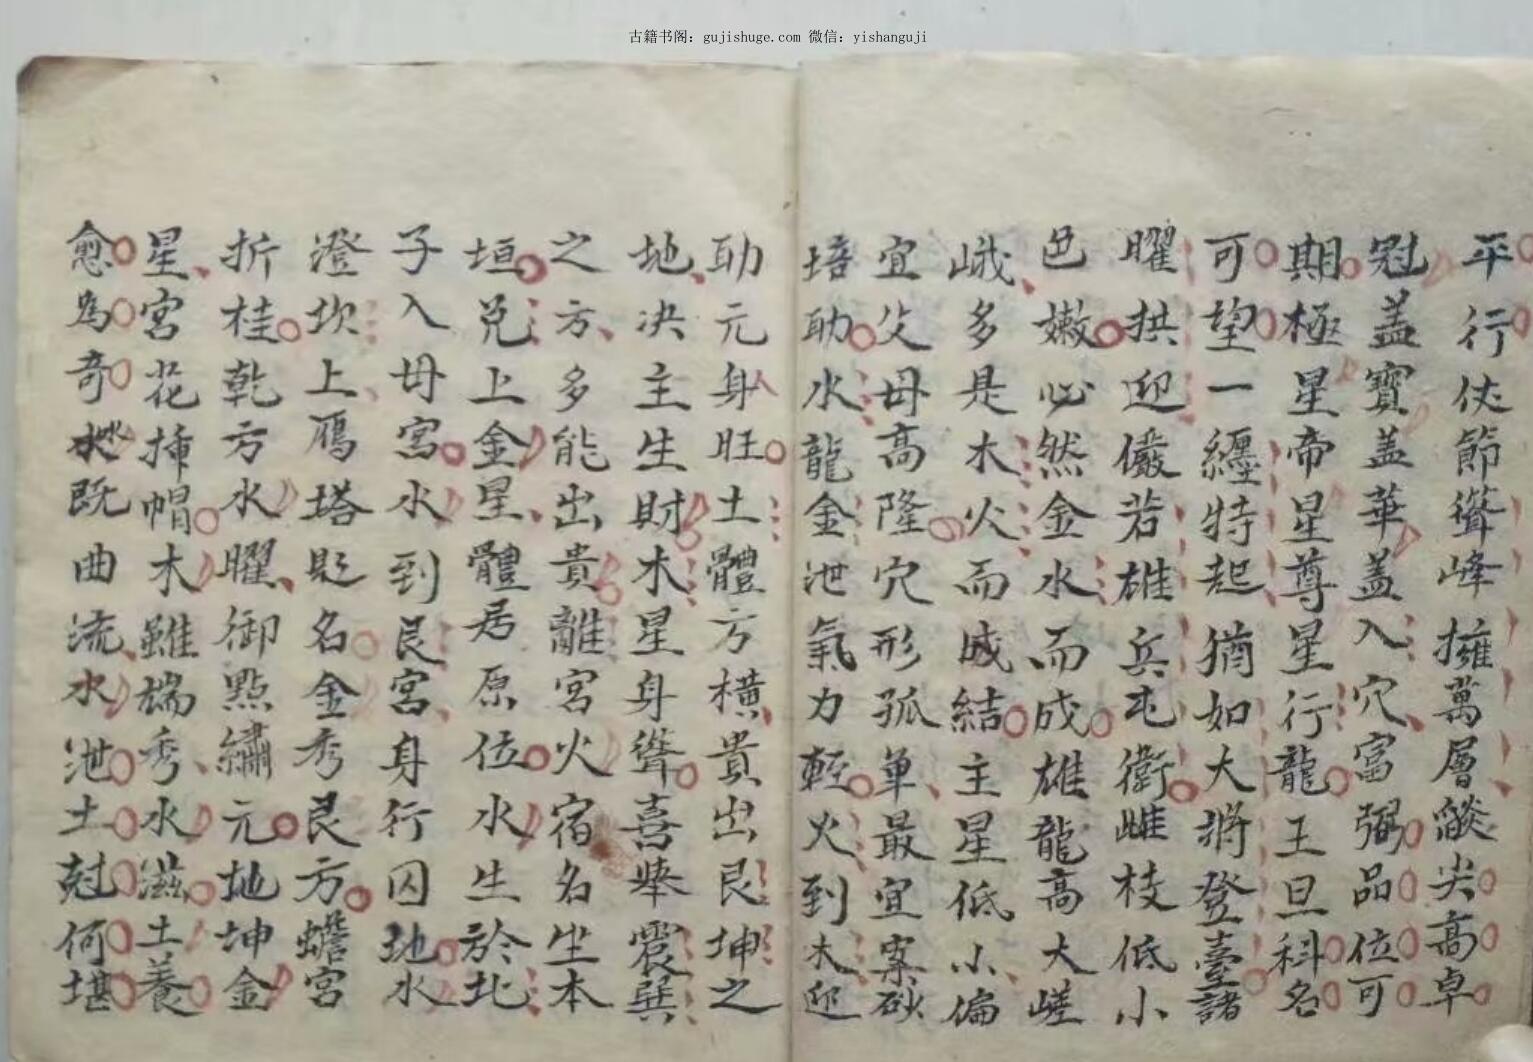 古籍书阁：gujishuge.com 微信：yishanguji
平行仗節聳峰擁萬層燄尖高卓
冠盖寶盖華盖入穴富弼品位可
期極星帝星尊星行龍王旦科名
可望一纏特起猶如大將登臺諸
曜拱迎儼若雄兵屯衛雌枝低小
邑嫩必然金水而成雄龍高大嵯
峨多是木火而成結主星低小偏
宜父母高隆穴形孤单最宜案砂
培助水龍金泄氣力輕火到木迎
助元身旺土體方橫貴出艮坤之
地决主生財木星身聳喜舉震巽
之方多能出貴離宮火宿名坐本
垣兌上金星體居原位水生於北
子入母宮水到艮宮身行囚地水
澄坎上鴈塔題名金秀艮方蟾宮
折桂乾方水曜御點繡元地坤金
星宮花挿帽木雖端秀水滋土養
愈為奇水既曲流水泄土尅何堪